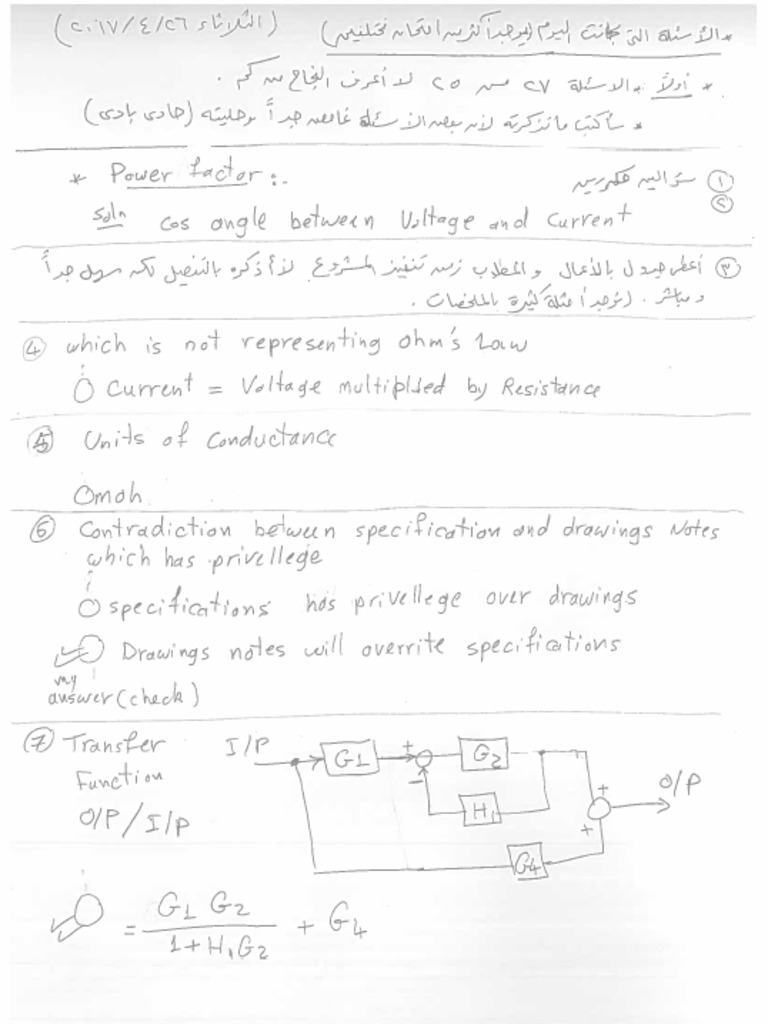 * الأسئلة التى جائت اليوم (يوجد أكثر من امتحان مختلفين) (الثلاثاء ٢٠١٧/٤/٢٦)
* أولاً * الاسئلة ٢٧ من ٢٥ لا أعرف النجاح من كم .
* سأكتب ما تذكرته لأن بعض الأسئلة غامضه جداً وحليته (حادى بادى)
① سؤالين مكررين * Power factor :-
② soln cos angle between Voltage and current
③ أعطى جدول بالأعمال والمطلوب زمن تنفيذ المشروع لا أذكره بالتفصيل لكنه سهل جداً
ومباشر . (توجد أمثلة كثيرة بالملخصات .
④ which is not representing ohm's Law
O Current = Voltage multiplied by Resistance
⑤ Units of conductance
Omoh
⑥ Contradiction between specification and drawings Notes
which has privellege
O specifications has privellege over drawings
O Drawings notes will overrite specifications
my
answer (check)
⑦ Transfer
Function
O/P / I/P
I/P G1 + - G2 H1 G4 + + O/P
= G1 G2 / 1 + H1 G2 + G4